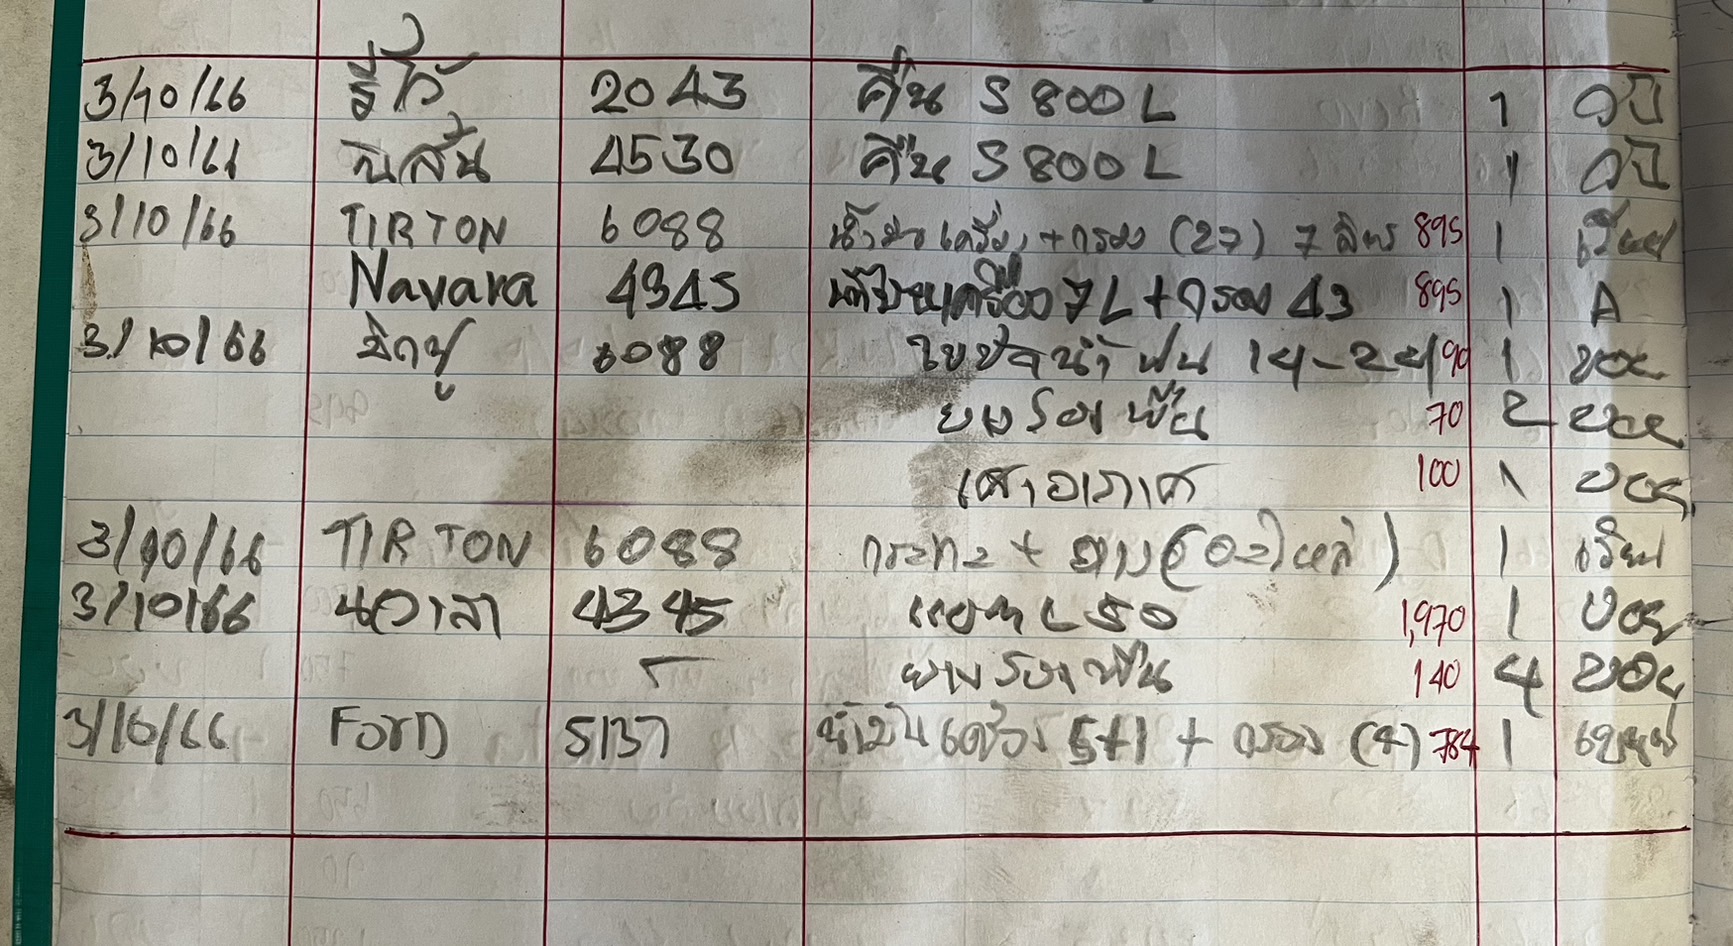 3/10/66 รีโว้ 2043 คืน S 800 L 1
3/10/66 นิสสัน 4530 คืน S 800 L 1
3/10/66 TIRTON 6088 น้ำมันเครื่อง + กรอง (27) 7 ลิตร 895 1
Navara 4345 น้ำมันเครื่อง 7L + กรอง 43 895 1 A
3/10/66 อีซูซุ 6088 ใบปัดน้ำฝน 14-24 90 1
ยางรองพื้น 70 2
เสาอากาศ 100 1
3/10/66 TIRTON 6088 กระทะ + ยาง 1
3/10/66 นาวาร่า 4345 แบต L 50 1,970 1
ยางรองพื้น 140 4
3/10/66 FORD 5137 น้ำมันเครื่อง 5+1 + กรอง (4) 784 1